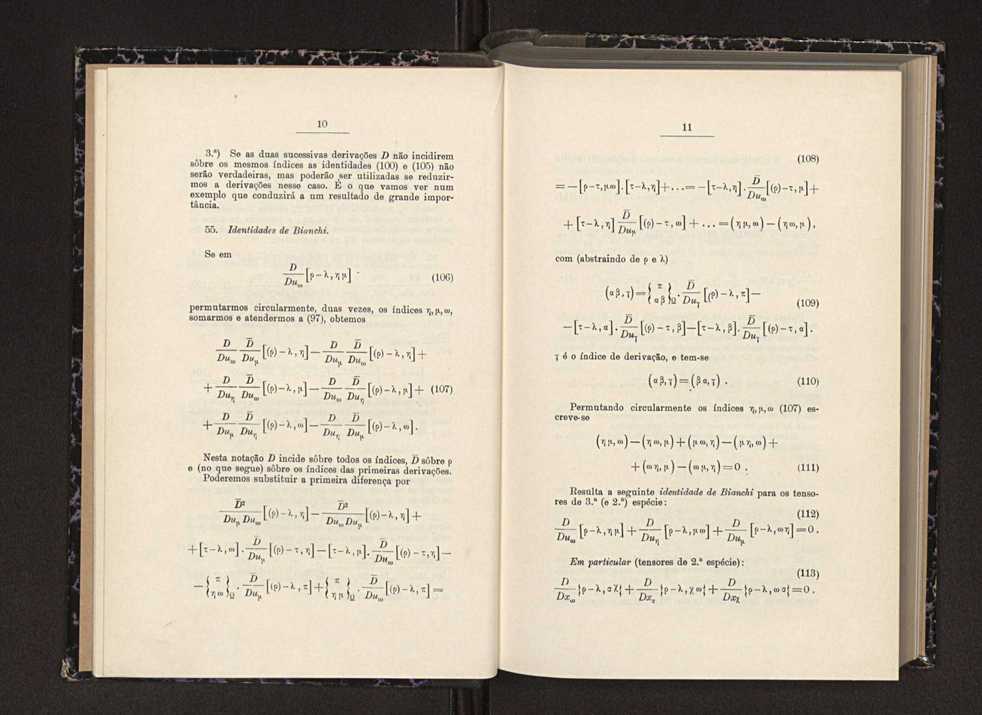 10
3.ª) Se as duas sucessivas derivações D não incidirem
sôbre os mesmos índices as identidades (100) e (105) não
serão verdadeiras, mas poderão ser utilizadas se reduzir-
mos a derivações nesse caso. É o que vamos ver num
exemplo que conduzirá a um resultado de grande impor-
tância.
55. Identidades de Bianchi.
Se em
D/Du_ω [ρ − λ, η μ] (106)
permutarmos circularmente, duas vezes, os índices η, μ, ω,
somarmos e atendermos a (97), obtemos
D/Du_ω D̄/Du_μ [(ρ) − λ, η] − D/Du_μ D̄/Du_ω [(ρ) − λ, η] +
+ D/Du_η D̄/Du_ω [(ρ) − λ, μ] − D/Du_ω D̄/Du_η [(ρ) − λ, μ] + (107)
+ D/Du_μ D̄/Du_η [(ρ) − λ, ω] − D/Du_η D̄/Du_μ [(ρ) − λ, ω].
Nesta notação D incide sôbre todos os índices, D̄ sôbre ρ
e (no que segue) sôbre os índices das primeiras derivações.
Poderemos substituir a primeira diferença por
D̄²/Du_μ Du_ω [(ρ) − λ, η] − D̄²/Du_ω Du_μ [(ρ) − λ, η] +
+ [τ − λ, ω] . D̄/Du_μ [(ρ) − τ, η] − [τ − λ, μ] . D̄/Du_ω [(ρ) − τ, η] −
− {π η ω}_Ω . D̄/Du_μ [(ρ) − λ, π] + {π η μ}_Ω . D̄/Du_ω [(ρ) − λ, π] =
11
(108)
= − [ρ − τ, μ ω] . [τ − λ, η] + . . . = − [τ − λ, η] . D̄/Du_ω [(ρ) − τ, μ] +
+ [τ − λ, η] D̄/Du_μ [(ρ) − τ, ω] + . . . = (η μ, ω) − (η ω, μ),
com (abstraindo de ρ e λ)
(α β, γ) = {π α β}_Ω . D̄/Du_γ [(ρ) − λ, π] −
(109)
− [τ − λ, α] . D̄/Du_γ [(ρ) − τ, β] − [τ − λ, β] . D̄/Du_γ [(ρ) − τ, α].
γ é o índice de derivação, e tem-se
(α β, γ) = (β α, γ) . (110)
Permutando circularmente os índices η, μ, ω (107) es-
creve-se
(η μ, ω) − (η ω, μ) + (μ ω, η) − (μ η, ω) +
+ (ω η, μ) − (ω μ, η) = 0 . (111)
Resulta a seguinte identidade de Bianchi para os tenso-
res de 3.ª (e 2.ª) espécie:
(112)
D/Du_ω [ρ − λ, η μ] + D/Du_η [ρ − λ, μ ω] + D/Du_μ [ρ − λ, ω η] = 0 .
Em particular (tensores de 2.ª espécie):
(113)
D/Dx_ω }ρ − λ, α χ{ + D/Dx_α }ρ − λ, χ ω{ + D/Dx_χ }ρ − λ, ω α{ = 0 .